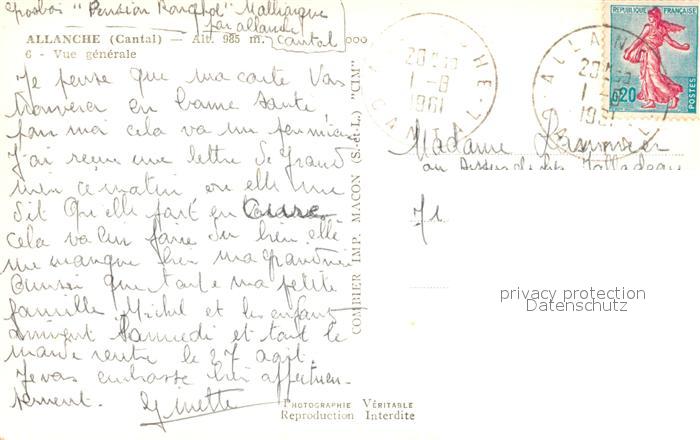 "Pension
par allanche
Cantal
ALLANCHE (Cantal) — Alt. 985 m.
6 - Vue générale
Je pense que ma carte vous
trouvera en bonne santé
pour moi cela va un peu mieux
J'ai reçu une lettre de grand
mère ce matin ou elle me
dit qu'elle part en
cela va lui faire du bien elle
me manque bien ma grand mère
Ainsi que toute ma petite
famille Michel et les enfants
arrivent Samedi et tout le
monde rentre le 27 août.
Je vous embrasse bien affectueu-
sement. Ginette
COMBIER IMP. MACON (S.-et-L.) "CIM"
PHOTOGRAPHIE VÉRITABLE
Reproduction Interdite
1-8
1961
CANTAL
ALLANCHE
1961
0,20
POSTES
Madame
71
privacy protection
Datenschutz